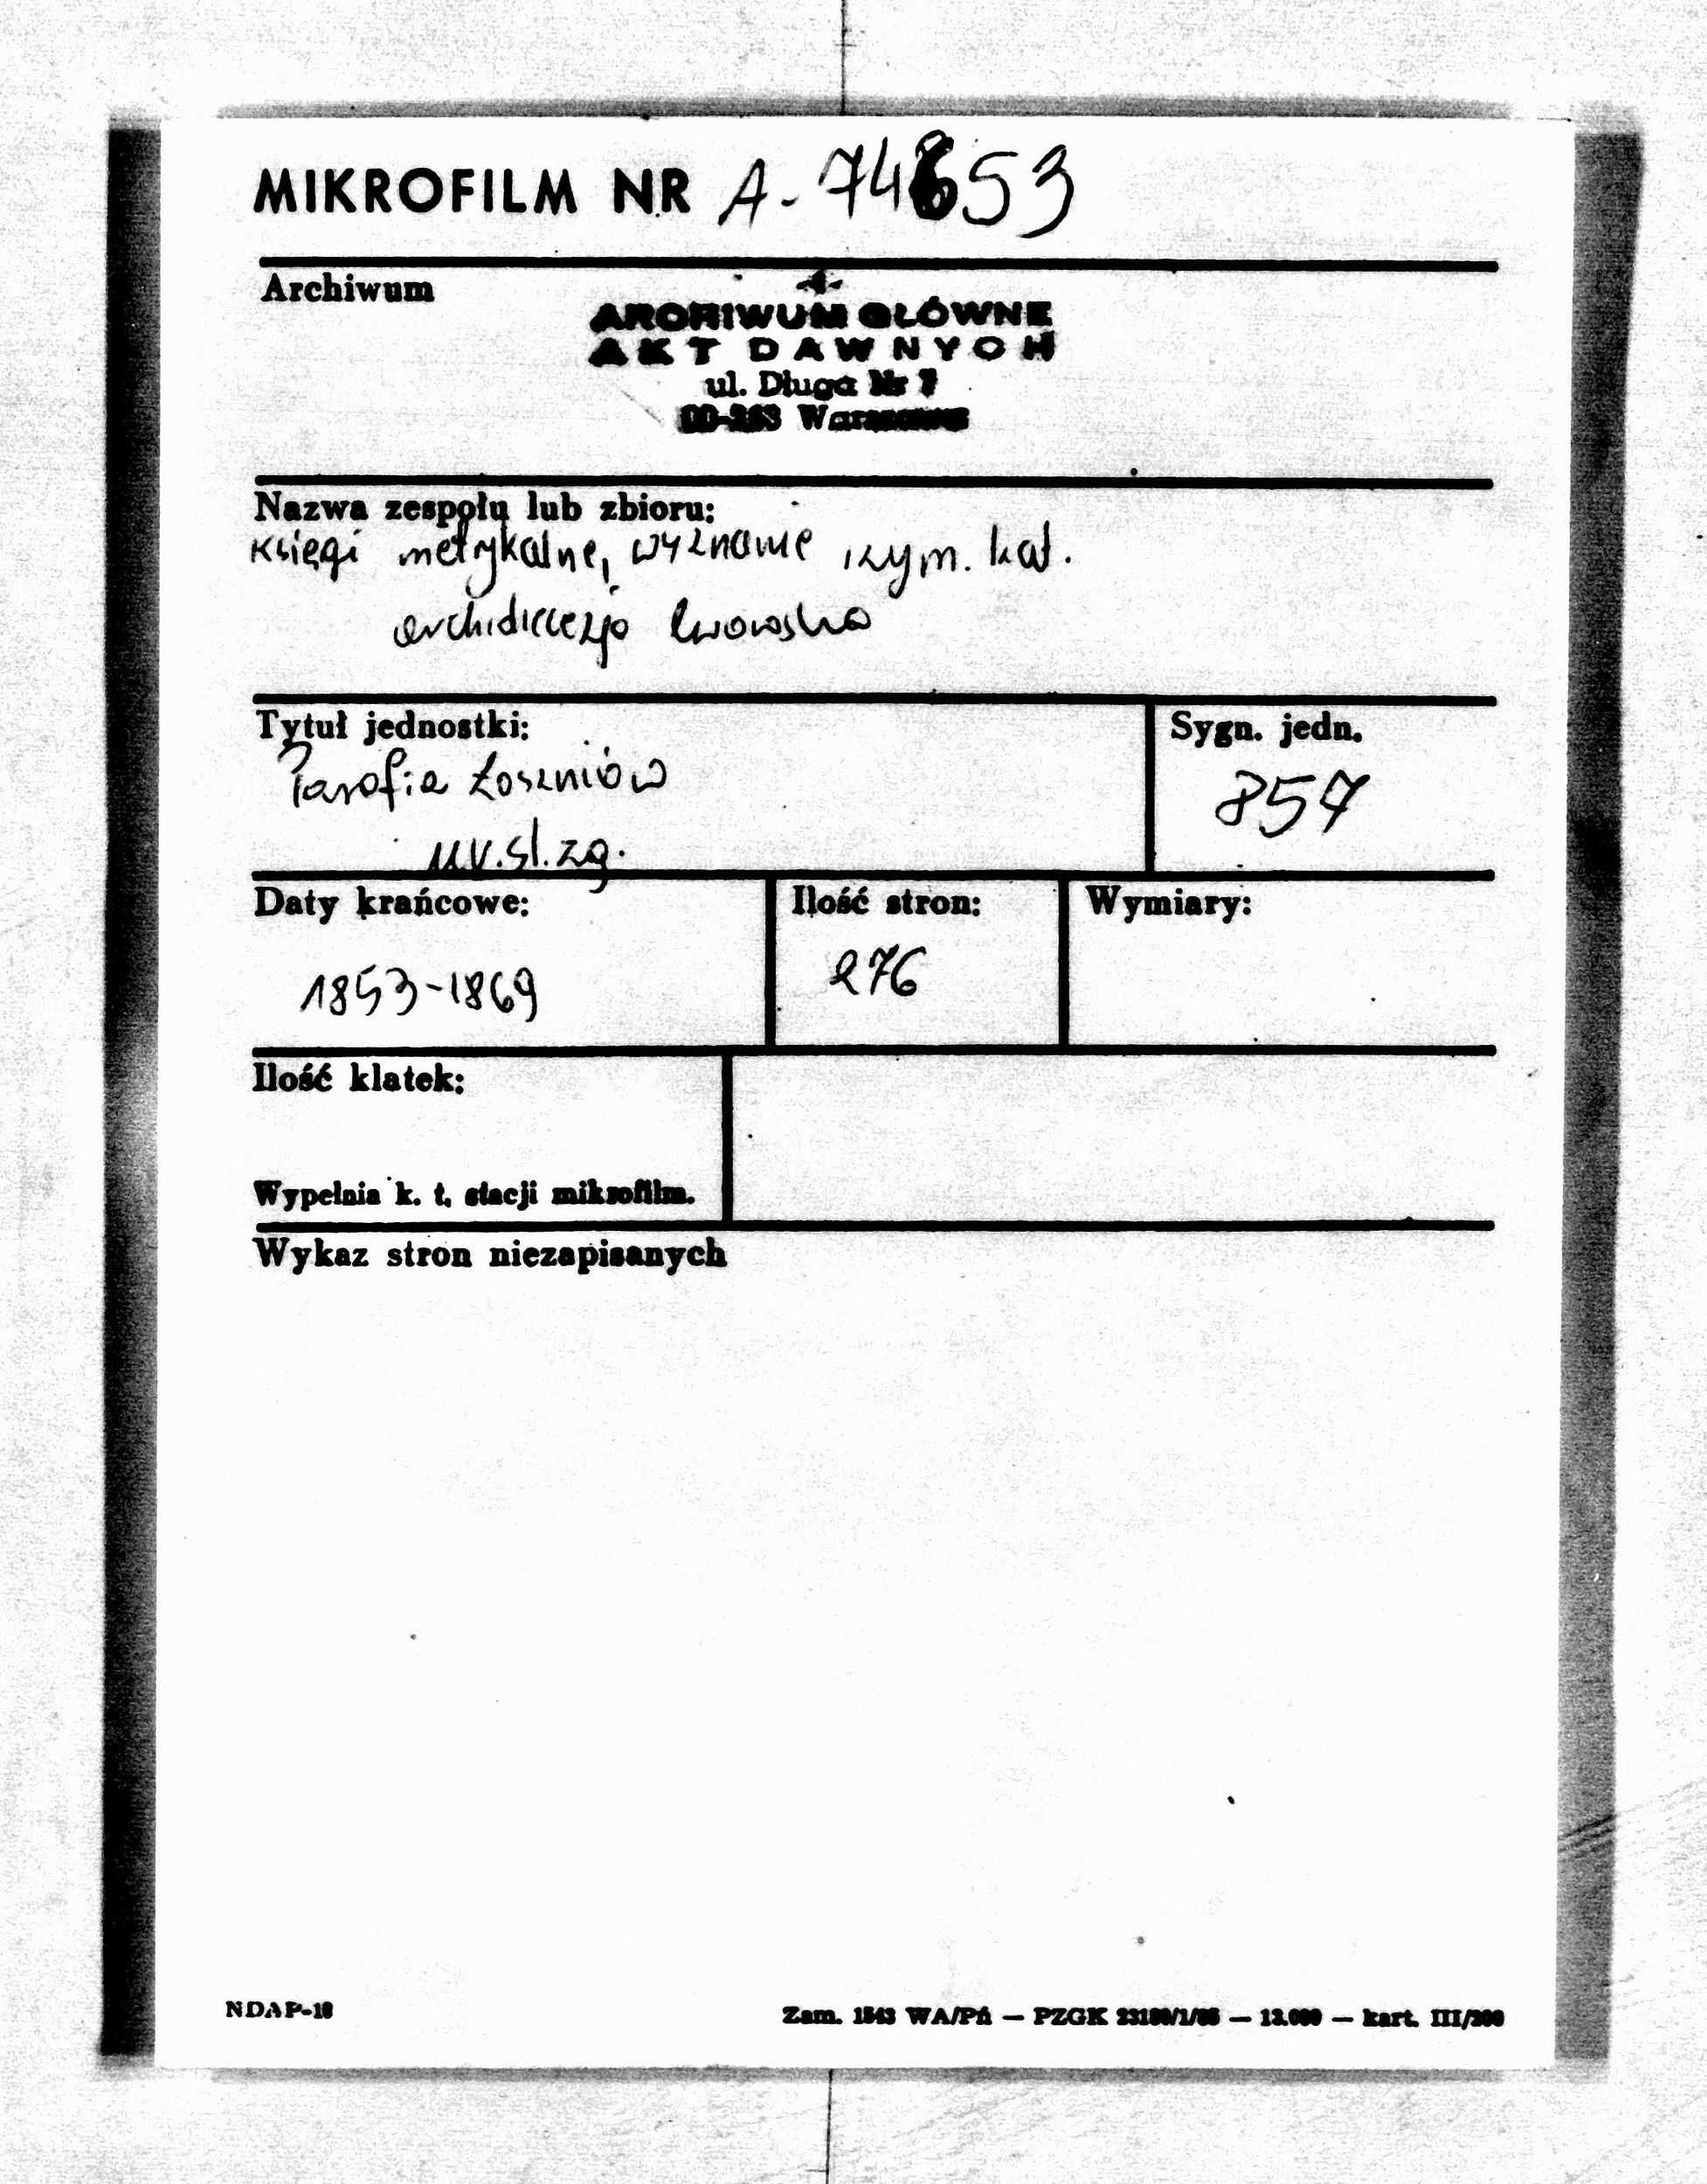 MIKROFILM NR A-74653
Archiwum
ARCHIWUM GŁÓWNE
AKT DAWNYCH
ul. Długa Nr 7
00-263 Warszawa
Nazwa zespołu lub zbioru:
Księgi metrykalne, wyznanie rzym. kat.
archidiecezja lwowska
Tytuł jednostki:
Sygn. jedn.
Parafia Łoszniów
857
ur. śl. zg.
Daty krańcowe:
Ilość stron:
Wymiary:
1853-1869
276
Ilość klatek:
Wypełnia k. t. stacji mikrofilm.
Wykaz stron niezapisanych
NDAP-18
Zam. 1543 WA/Pń — PZGK — kart. III/200